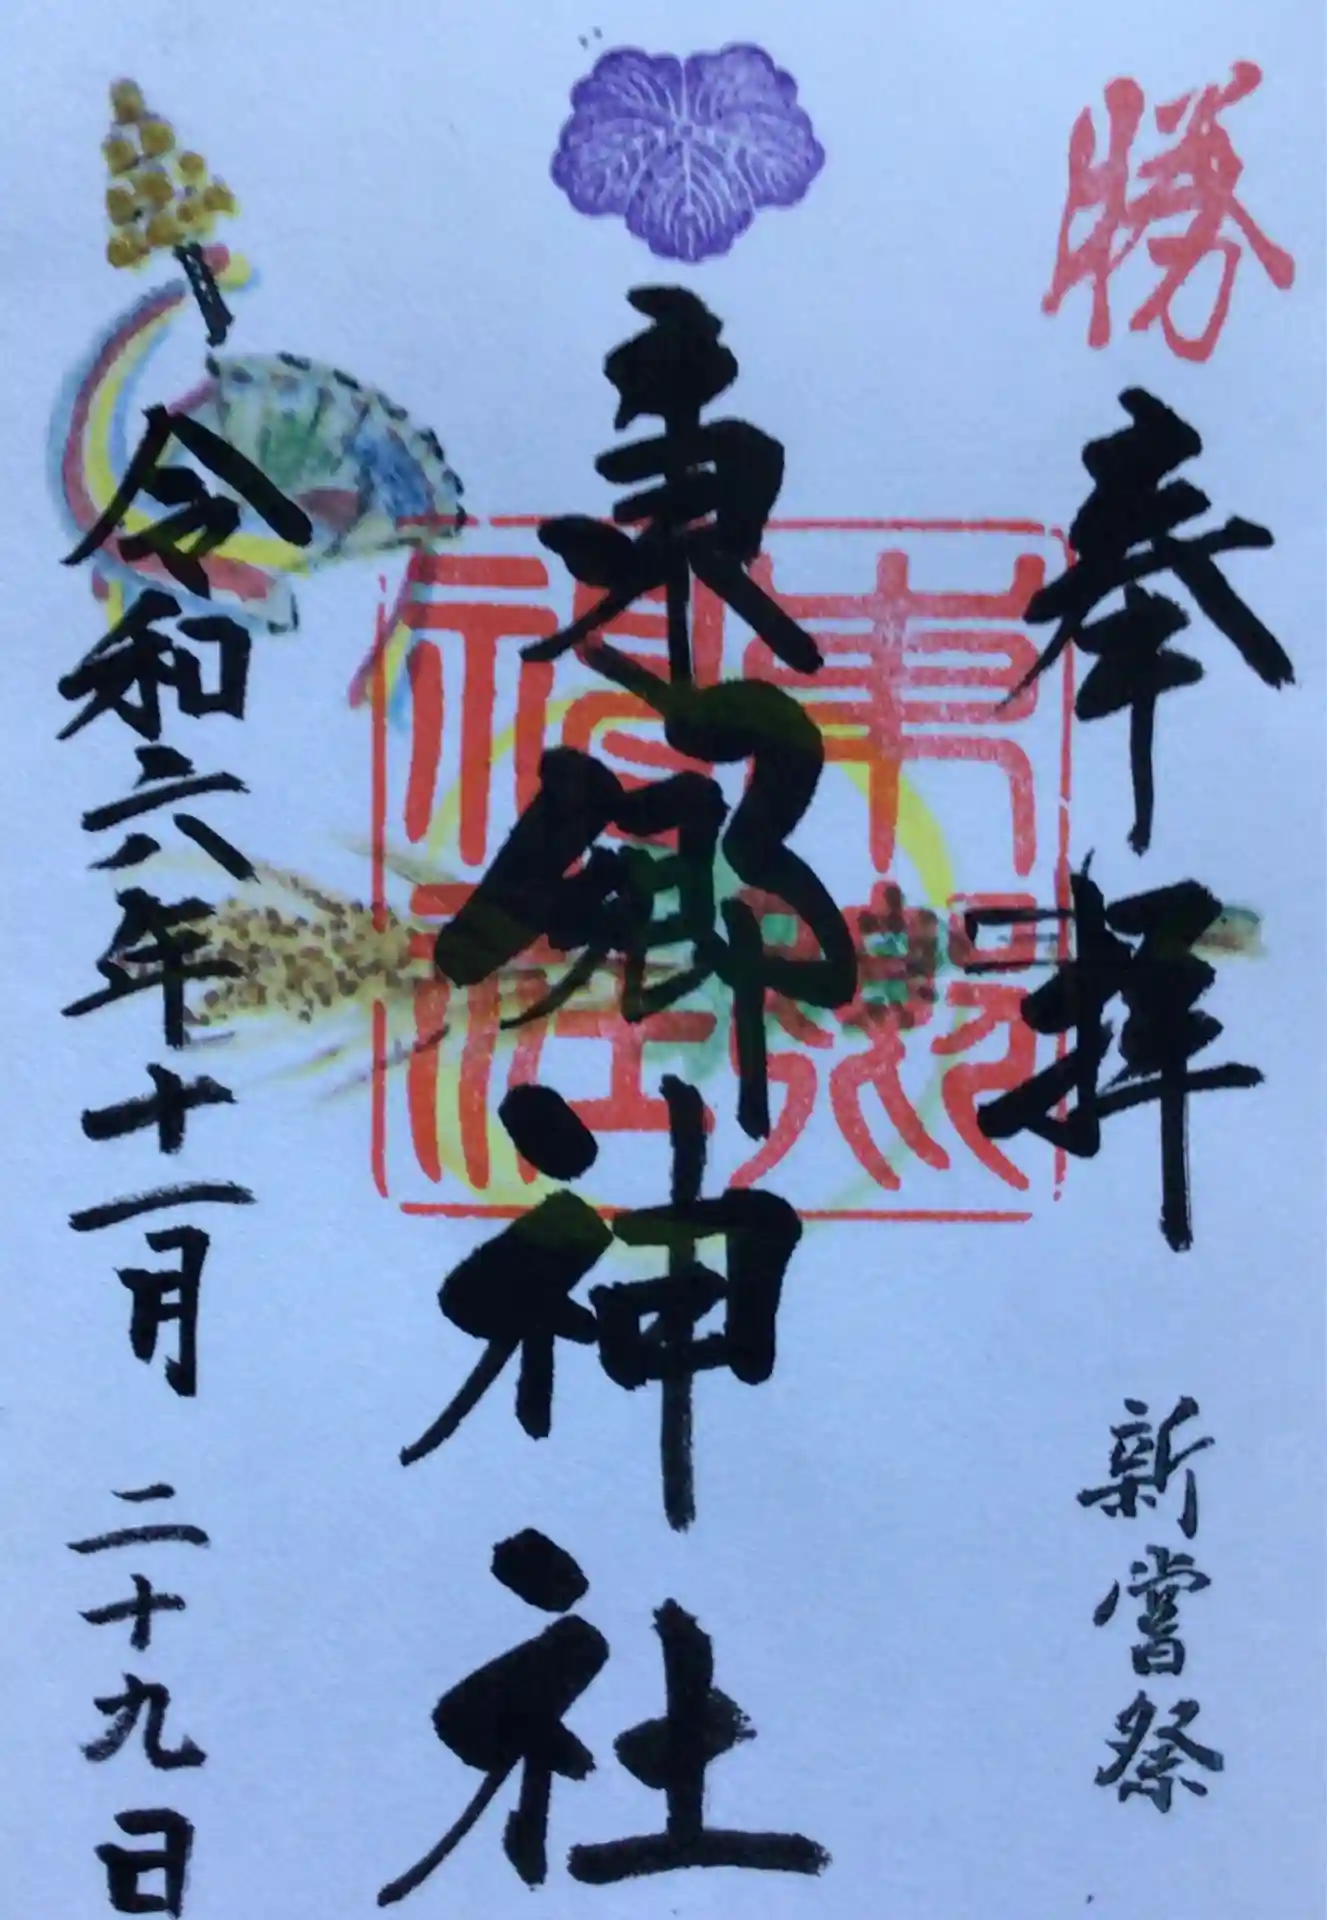 勝
奉拝
新嘗祭
東郷神社
東郷神社
令和六年十一月二十九日